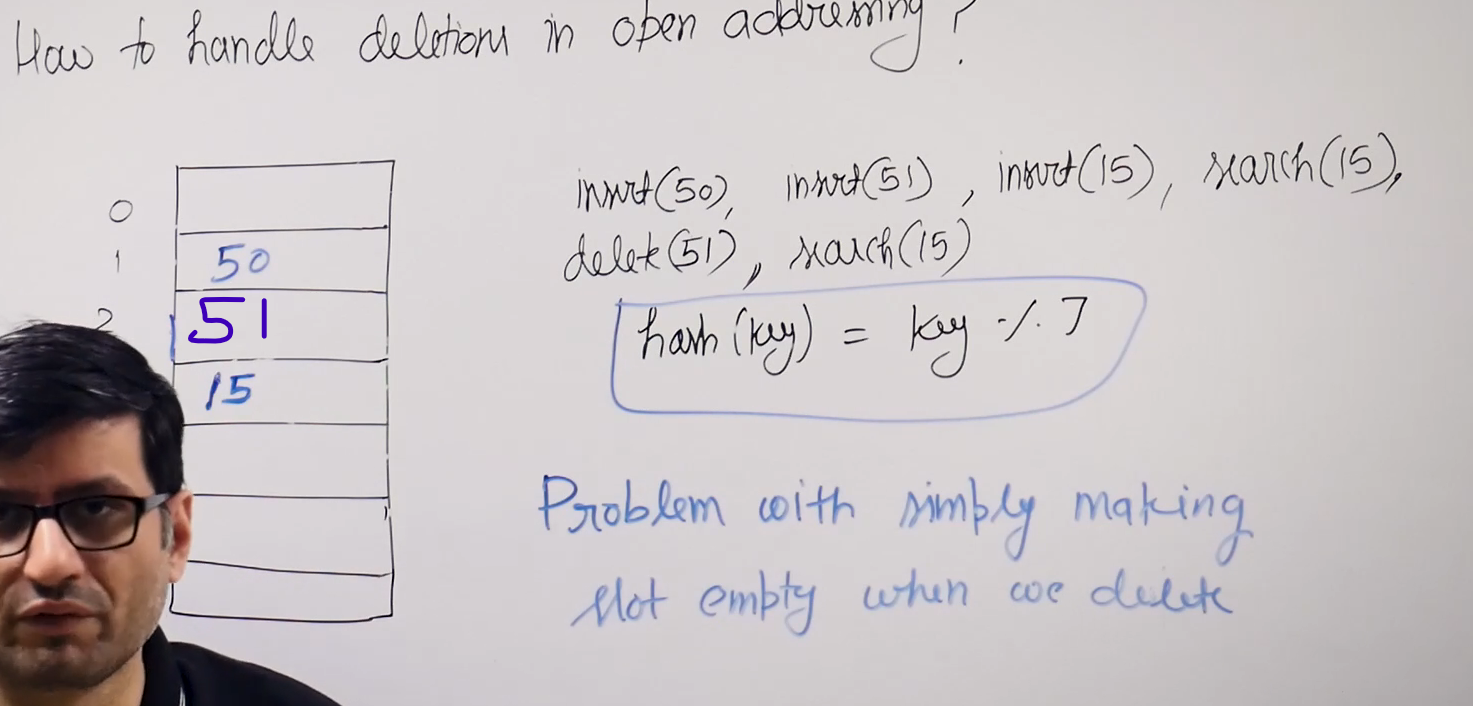 How to handle deletions in open addressing?
0
1 50
2 51
15
insert(50), insert(51), insert(15), search(15),
delete(51), search(15)
hash(key) = key % 7
Problem with simply making
slot empty when we delete